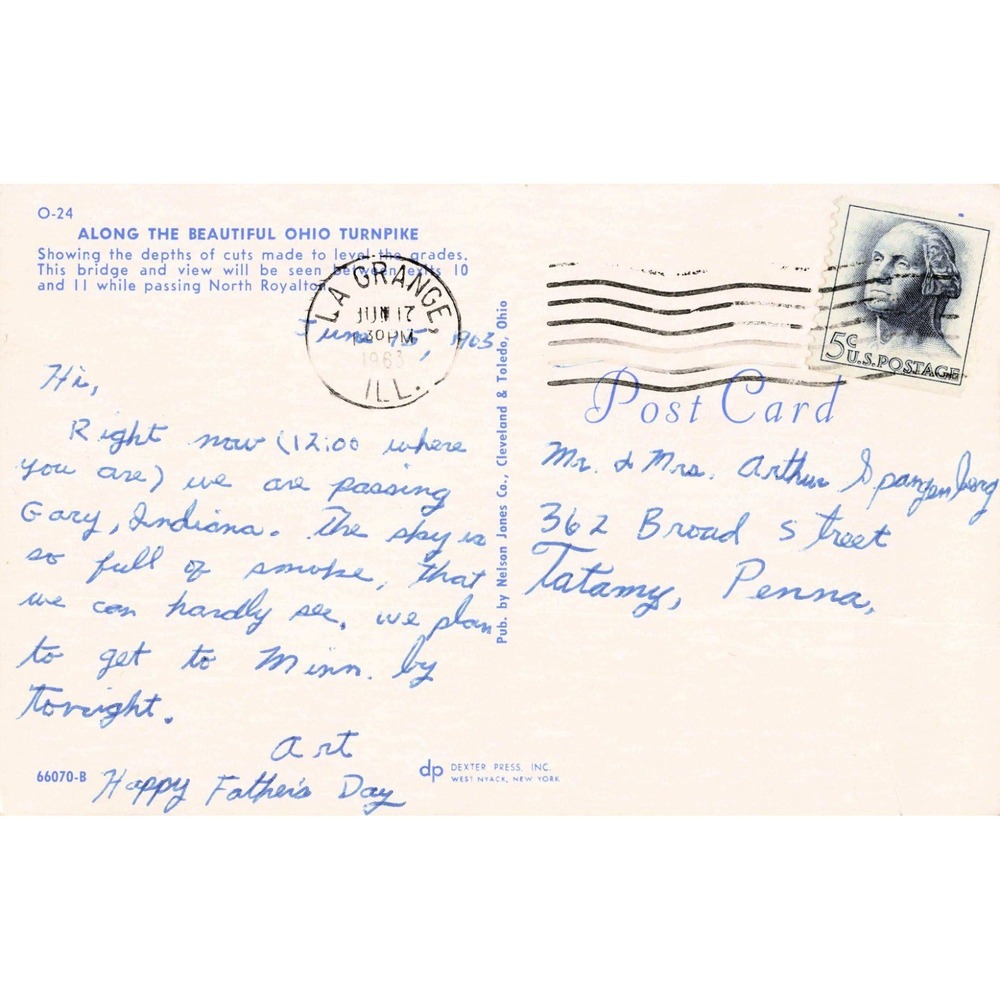 O-24
ALONG THE BEAUTIFUL OHIO TURNPIKE
Showing the depths of cuts made to level the grades.
This bridge and view will be seen between exits 10
and 11 while passing North Royalton.
LA GRANGE,
JUN 12
PM
1963
ILL.
June 1963
Hi,
Right now (12:00 where
you are) we are passing
Gary, Indiana. The sky is
so full of smoke, that
we can hardly see. we plan
to get to Minn. by
tonight.
Art
Happy Father's Day
66070-B
dp DEXTER PRESS, INC.
WEST NYACK, NEW YORK
Pub. by Nelson Jones Co., Cleveland & Toledo, Ohio
5c
U.S. POSTAGE
Post Card
Mr. & Mrs. Arthur Spangenberg
362 Broad Street
Tatamy, Penna,